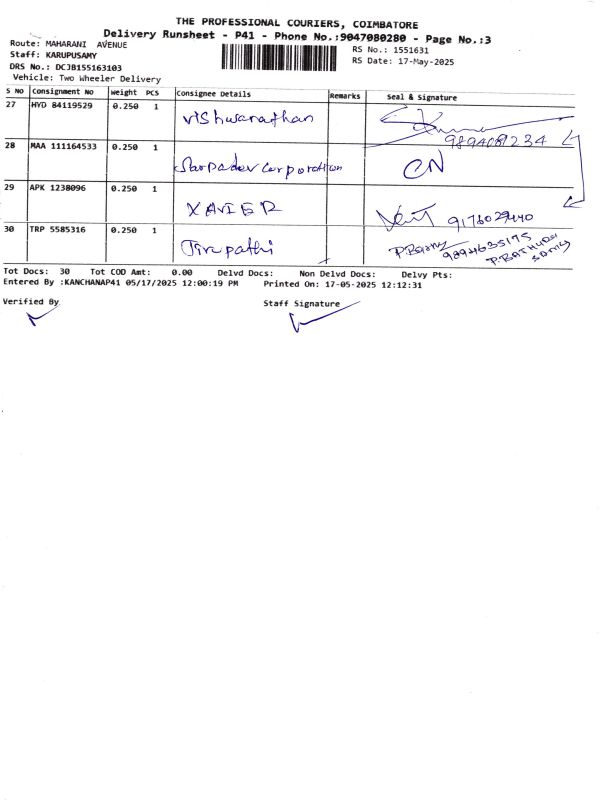 THE PROFESSIONAL COURIERS, COIMBATORE
Delivery Runsheet - P41 - Phone No.:9047080280 - Page No.:3
Route: MAHARANI AVENUE
Staff: KARUPUSAMY
DRS No.: DCJB155163103
Vehicle: Two Wheeler Delivery
RS No.: 1551631
RS Date: 17-May-2025
S NO Consignment No Weight PCS Consignee Details Remarks Seal & Signature
27 HYD 84119529 0.250 1 Vishwanathan
28 MAA 111164533 0.250 1 Corporation CN
29 APK 1238096 0.250 1 XAVIER
30 TRP 5585316 0.250 1 Tirupathi 9894635175
Tot Docs: 30 Tot COD Amt: 0.00 Delvd Docs: Non Delvd Docs: Delvy Pts:
Entered By :KANCHANAP41 05/17/2025 12:00:19 PM Printed On: 17-05-2025 12:12:31
Verified By Staff Signature